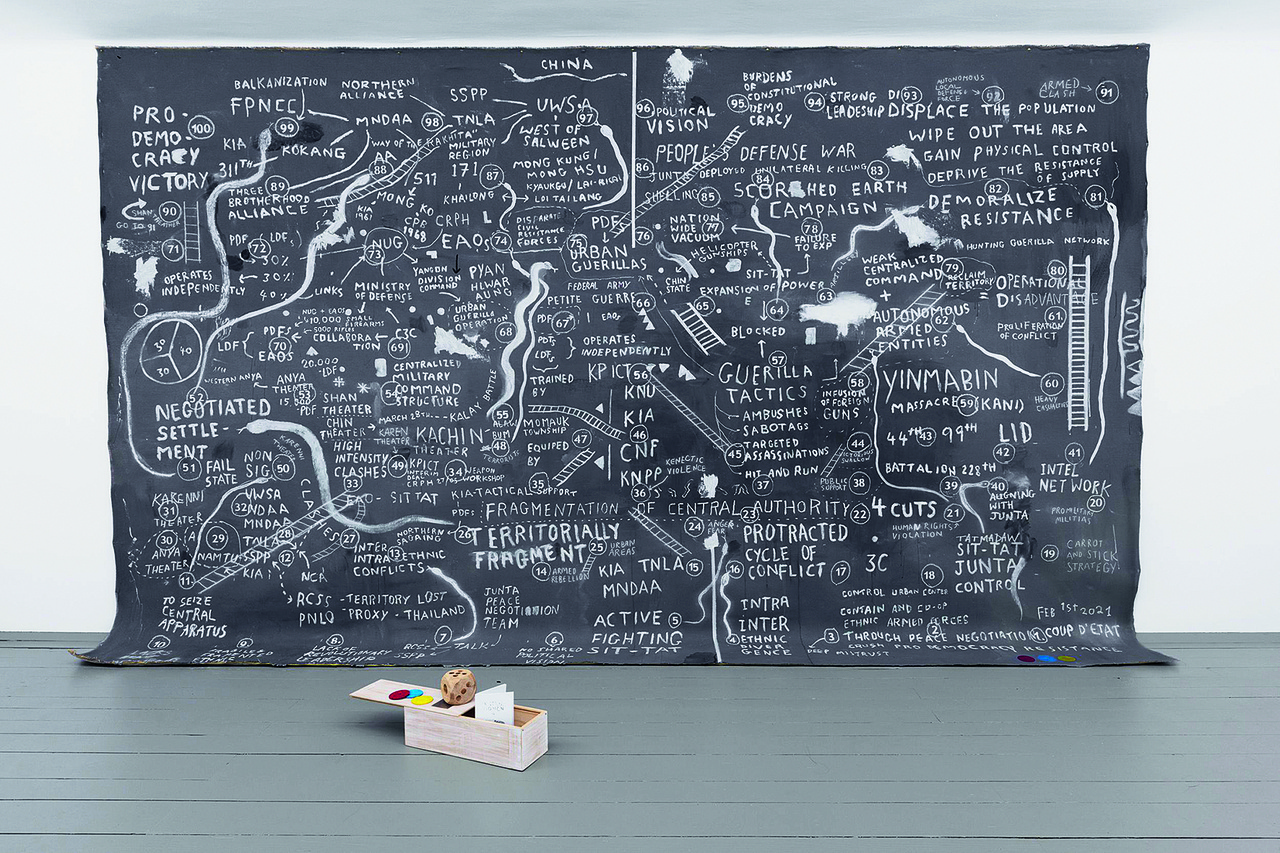 CHINA
BALKANIZATION
NORTHERN
ALLIANCE
SSPP
UWSA
FPNCC
MNDAA
98
TNLA
97
PRO-
DEMO-
CRACY
VICTORY
100
99
KIA
KOKANG
WAY OF THE "RAKHITA"
MILITARY
REGION
171
WEST OF
SALWEEN
MONG KUNG/
MONG HSU
KYAUKGU/LAI-RGAI
LOI TAI LENG
AA
88
511
87
KHAILONG
311th
THREE
BROTHERHOOD
ALLIANCE
89
MONG KO
CPB
1968
CRPH
EAOs
74
DISPARATE
CIVIL
RESISTANCE
FORCES
PDF
75
URBAN
GUERILLAS
90
GO TO 91
71
PDF
72
LDF
30%
30%
40%
NUG
73
OPERATES
INDEPENDENTLY
LINKS
MINISTRY
OF DEFENSE
YANGON
DIVISION
COMMAND
PYAN
HLWAR
AUNG
URBAN
GUERILLA
OPERATION
FEDERAL ARMY
PETITE GUERRE
1 EAO
NUG + EAOS
$10,000 SMALL
FIREARMS
5000 RIFLES
COLLABORA
TION
C3C
69
68
PDF
67
LDF
OPERATES
INDEPENDENTLY
PDFs
LDF
70
EAOS
20,000
LDF
30
40
30
WESTERN ANYA
52
ANYA
THEATER
53
PDF
SHAN
THEATER
54
CENTRALIZED
MILITARY
COMMAND
STRUCTURE
TRAINED
BY
KPICT
56
KNU
KIA
46
CNF
KNPP
MARCH 28TH
KALAY BATTLE
NEGOTIATED
SETTLE-
MENT
CHIN
THEATER
KAREN
THEATER
KACHIN
55
48
MOMAUK
TOWNSHIP
47
EQUIPED
BY
HIGH
INTENSITY
CLASHES
49
KPICT
34
WEAPON
WORKSHOP
51
FAIL
STATE
NON
SIG.
50
33
SITTAT
KIA-TACTICAL SUPPORT
35
36
KARENNI
31
THEATER
32
UWSA
NDAA
MNDAA
TNLA
SSPP
KIA
30
ANYA
THEATER
29
NAMTU
28
12
11
27
INTER
INTRA
13
ETHNIC
CONFLICTS
NORTHERN
SAGAING
26
PDF:
FRAGMENTATION OF CENTRAL AUTHORITY
TERRITORIALLY
FRAGMENT
25
URBAN
AREAS
14
ARMED
REBELLION
KIA
TNLA
15
MNDAA
24
ANGER
FEAR
NCA
RCSS - TERRITORY LOST
PNLO
PROXY - THAILAND
TO SEIZE
CENTRAL
APPARATUS
JUNTA
PEACE
NEGOTIATION
TEAM
ACTIVE
5
FIGHTING
SIT-TAT
10
9
8
7
TALK
6
NO SHARED
POLITICAL
VISION
96
POLITICAL
VISION
95
BURDENS
OF
CONSTITUTIONAL
DEMO
CRACY
94
STRONG
LEADESHIP
93
DISPLACE THE POPULATION
AUTONOMOUS
LOCAL
DEFENSE
FORCE
92
ARMED
CLASH
91
WIPE OUT THE AREA
GAIN PHYSICAL CONTROL
DEPRIVE THE RESISTANCE
OF SUPPLY
PEOPLE'S DEFENSE WAR
86
JUNTA DEPLOYED UNILATERAL KILLING
83
SHELLING
85
84
SCORCHED EARTH
CAMPAIGN
82
DEMORALIZE
RESISTANCE
81
76
NATION
WIDE
77
VACUUM
78
FAILURE
TO EXP
HUNTING GUERILLA NETWORK
HELICOPTER
GUNSHIPS
CHIN
STATE
SIT-TAT
EXPANSION OF POWER
WEAK
CENTRALIZED
COMMAND
+
AUTONOMOUS
ARMED
62
ENTITIES
79
RECLAIM
TERRITORY
=
80
OPERATIONAL
DISADVANTAGE
61
PROLIFERATION
OF CONFLICT
66
65
64
63
BLOCKED
57
GUERILLA
TACTICS
AMBUSHES
SABOTAGS
TARGETED
ASSASSINATIONS
45
HIT AND RUN
37
58
INFUSION
OF FOREIGN
GUNS
YINMABIN
MASSACRE
59
(KANI)
60
HEAVY
CASUALTIES
44
44TH
43
99TH
LID
42
41
BATTALION 228TH
INTEL
NETWORK
KENECTIC
VIOLENCE
PUBLIC
SUPPORT
38
39
40
ALIGNING
WITH
JUNTA
20
PROMILITARY
MILITIAS
23
22
4 CUTS
21
HUMAN RIGHTS
VIOLATION
PROTRACTED
CYCLE OF
CONFLICT
16
17
3C
18
TATMADAW
SIT-TAT
JUNTA
CONTROL
19
CARROT
AND STICK
STRATEGY
INTRA
INTER
4
ETHNIC
DIVER
GENCE
CONTROL URBAN CENTER
CONTAIN AND CO-OP
ETHNIC ARMED FORCES
FEB 1st 2021
3
THROUGH PEACE NEGOTIATION
2
1
COUP D'ETAT
DEEP MISTRUST
CRUSH PRO DEMOCRACY RESISTANCE